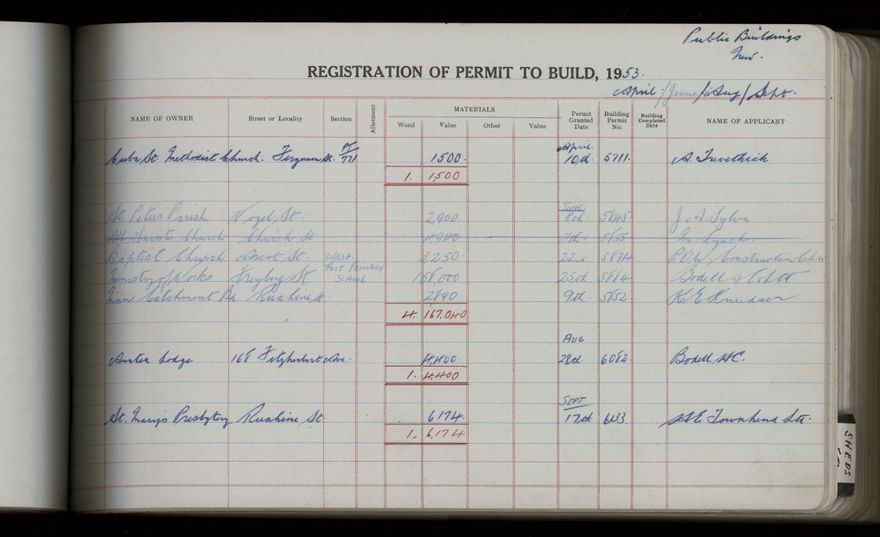 Public Buildings
New.
REGISTRATION OF PERMIT TO BUILD, 1953.
April / June / Aug / Sept.
NAME OF OWNER Street or Locality Section Allotment MATERIALS Permit Granted Date Building Permit No. Building Completed Date NAME OF APPLICANT
Wood Value Other Value
April
Cuba St. Methodist Church. Ferguson St. PT 771 1500. 10th. 5711. A. Trevethick
1. 1,500
June
St Peters Parish Vogel St. 2,900 8th 5845 J. A Sylva
All Saints Church Church St 4940 9th. 5855
Baptist Church Ascot St. 3250 22nd 5874 Construction
Ministry of Works Freyberg St POST PRIMARY SCHOOL 158,000 25th 5884 Bodell
Man. Catchment Bd. Ruahine St 2890 9th 5852 K E Knudsen
4. 167,040
Aug
Awatea Lodge 168 Fitzherbert Ave. 4,400 28th. 6082. Bodell H C.
1. 4,400
SEPT
St. Mary's Presbytery Ruahine St. 6174. 17th 6133. Townshend Ltd.
1. 6,174
SHEDS